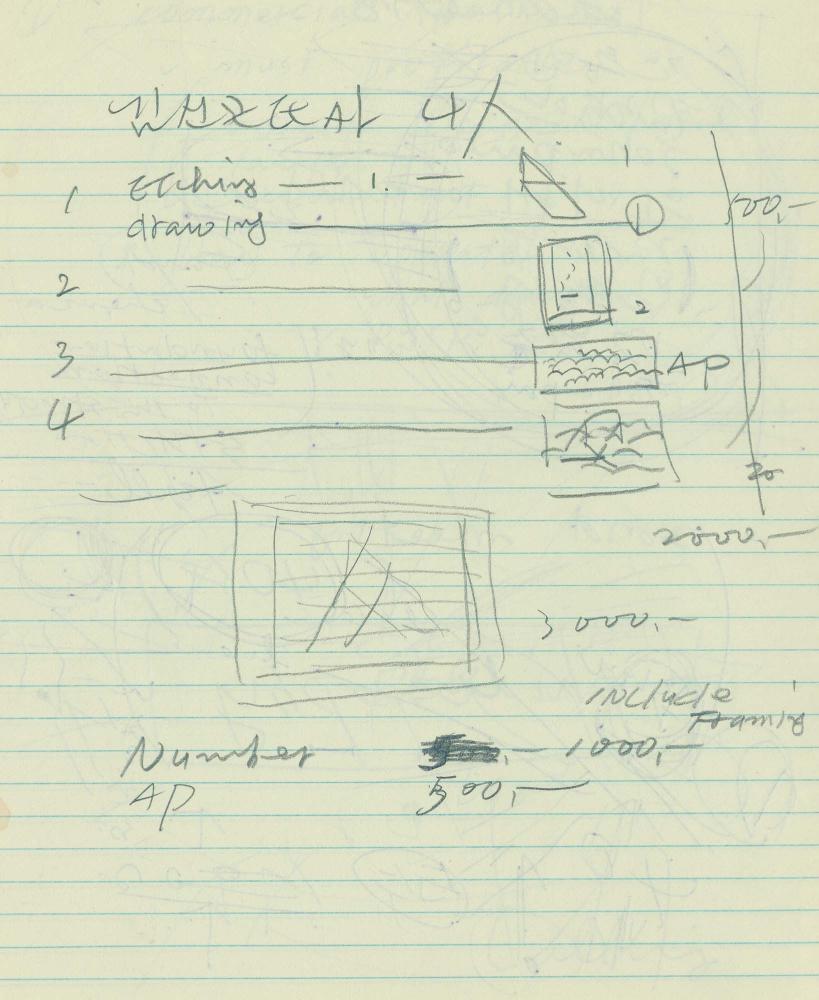 김성근 E사 4人
1 Etching — 1. — 1
drawing — 1 500,-
2 2
3 AP
4
20
2000,-
3000,-
INCLUDE
Framing
Number 1000,-
AP 500,-